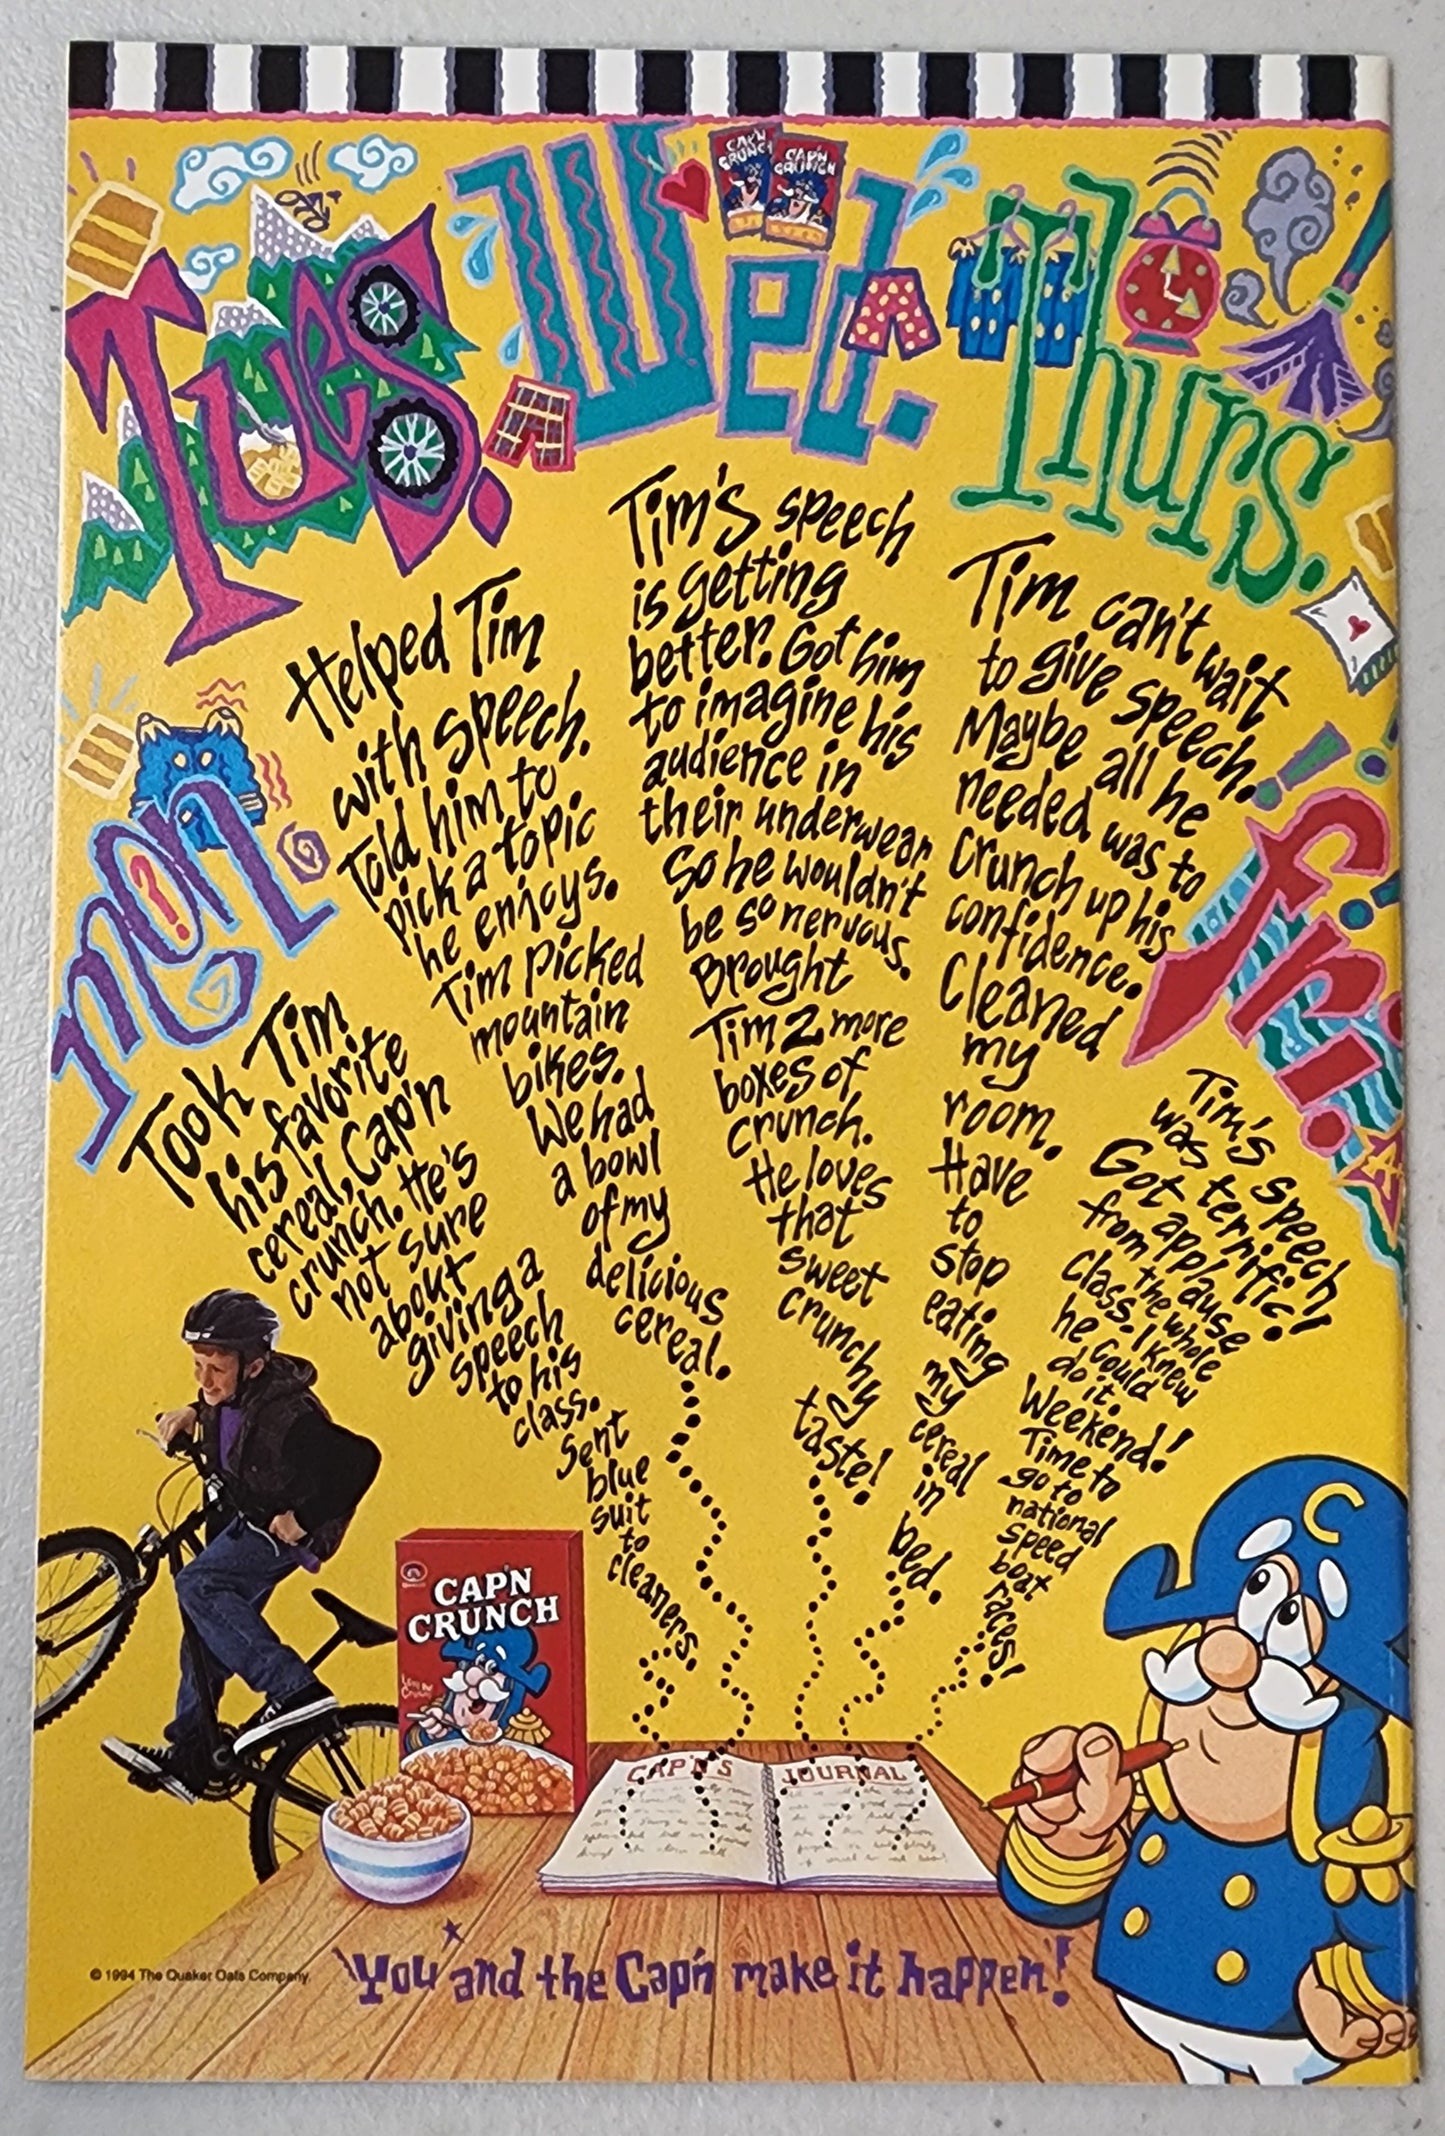 Mon.
Took Tim
his favorite
cereal, Cap'n
crunch. He's
not sure
about
giving a
speech
to his
class.
Sent
blue
suit
to
cleaners.
Tues.
Helped Tim
with speech.
Told him to
pick a topic
he enjoys.
Tim picked
mountain
bikes.
We had
a bowl
of my
delicious
cereal.
Wed.
CAP'N
CRUNCH
CAP'N
CRUNCH
Tim's speech
is getting
better. Got him
to imagine his
audience in
their underwear
So he wouldn't
be so nervous.
Brought
Tim 2 more
boxes of
crunch.
He loves
that
sweet
crunchy
taste!
Thurs.
Tim can't wait
to give speech.
Maybe all he
needed was to
crunch up his
confidence.
Cleaned
my
room.
Have
to
stop
eating
my
cereal
in
bed.
fri.
Tim's speech
was terrific!
Got applause
from the whole
class. I knew
he could
do it.
Weekend!
Time to
go to
national
speed
boat
races!
CAP'N
CRUNCH
C
CAP'N'S JOURNAL
You and the Cap'n make it happen!
© 1994 The Quaker Oats Company.